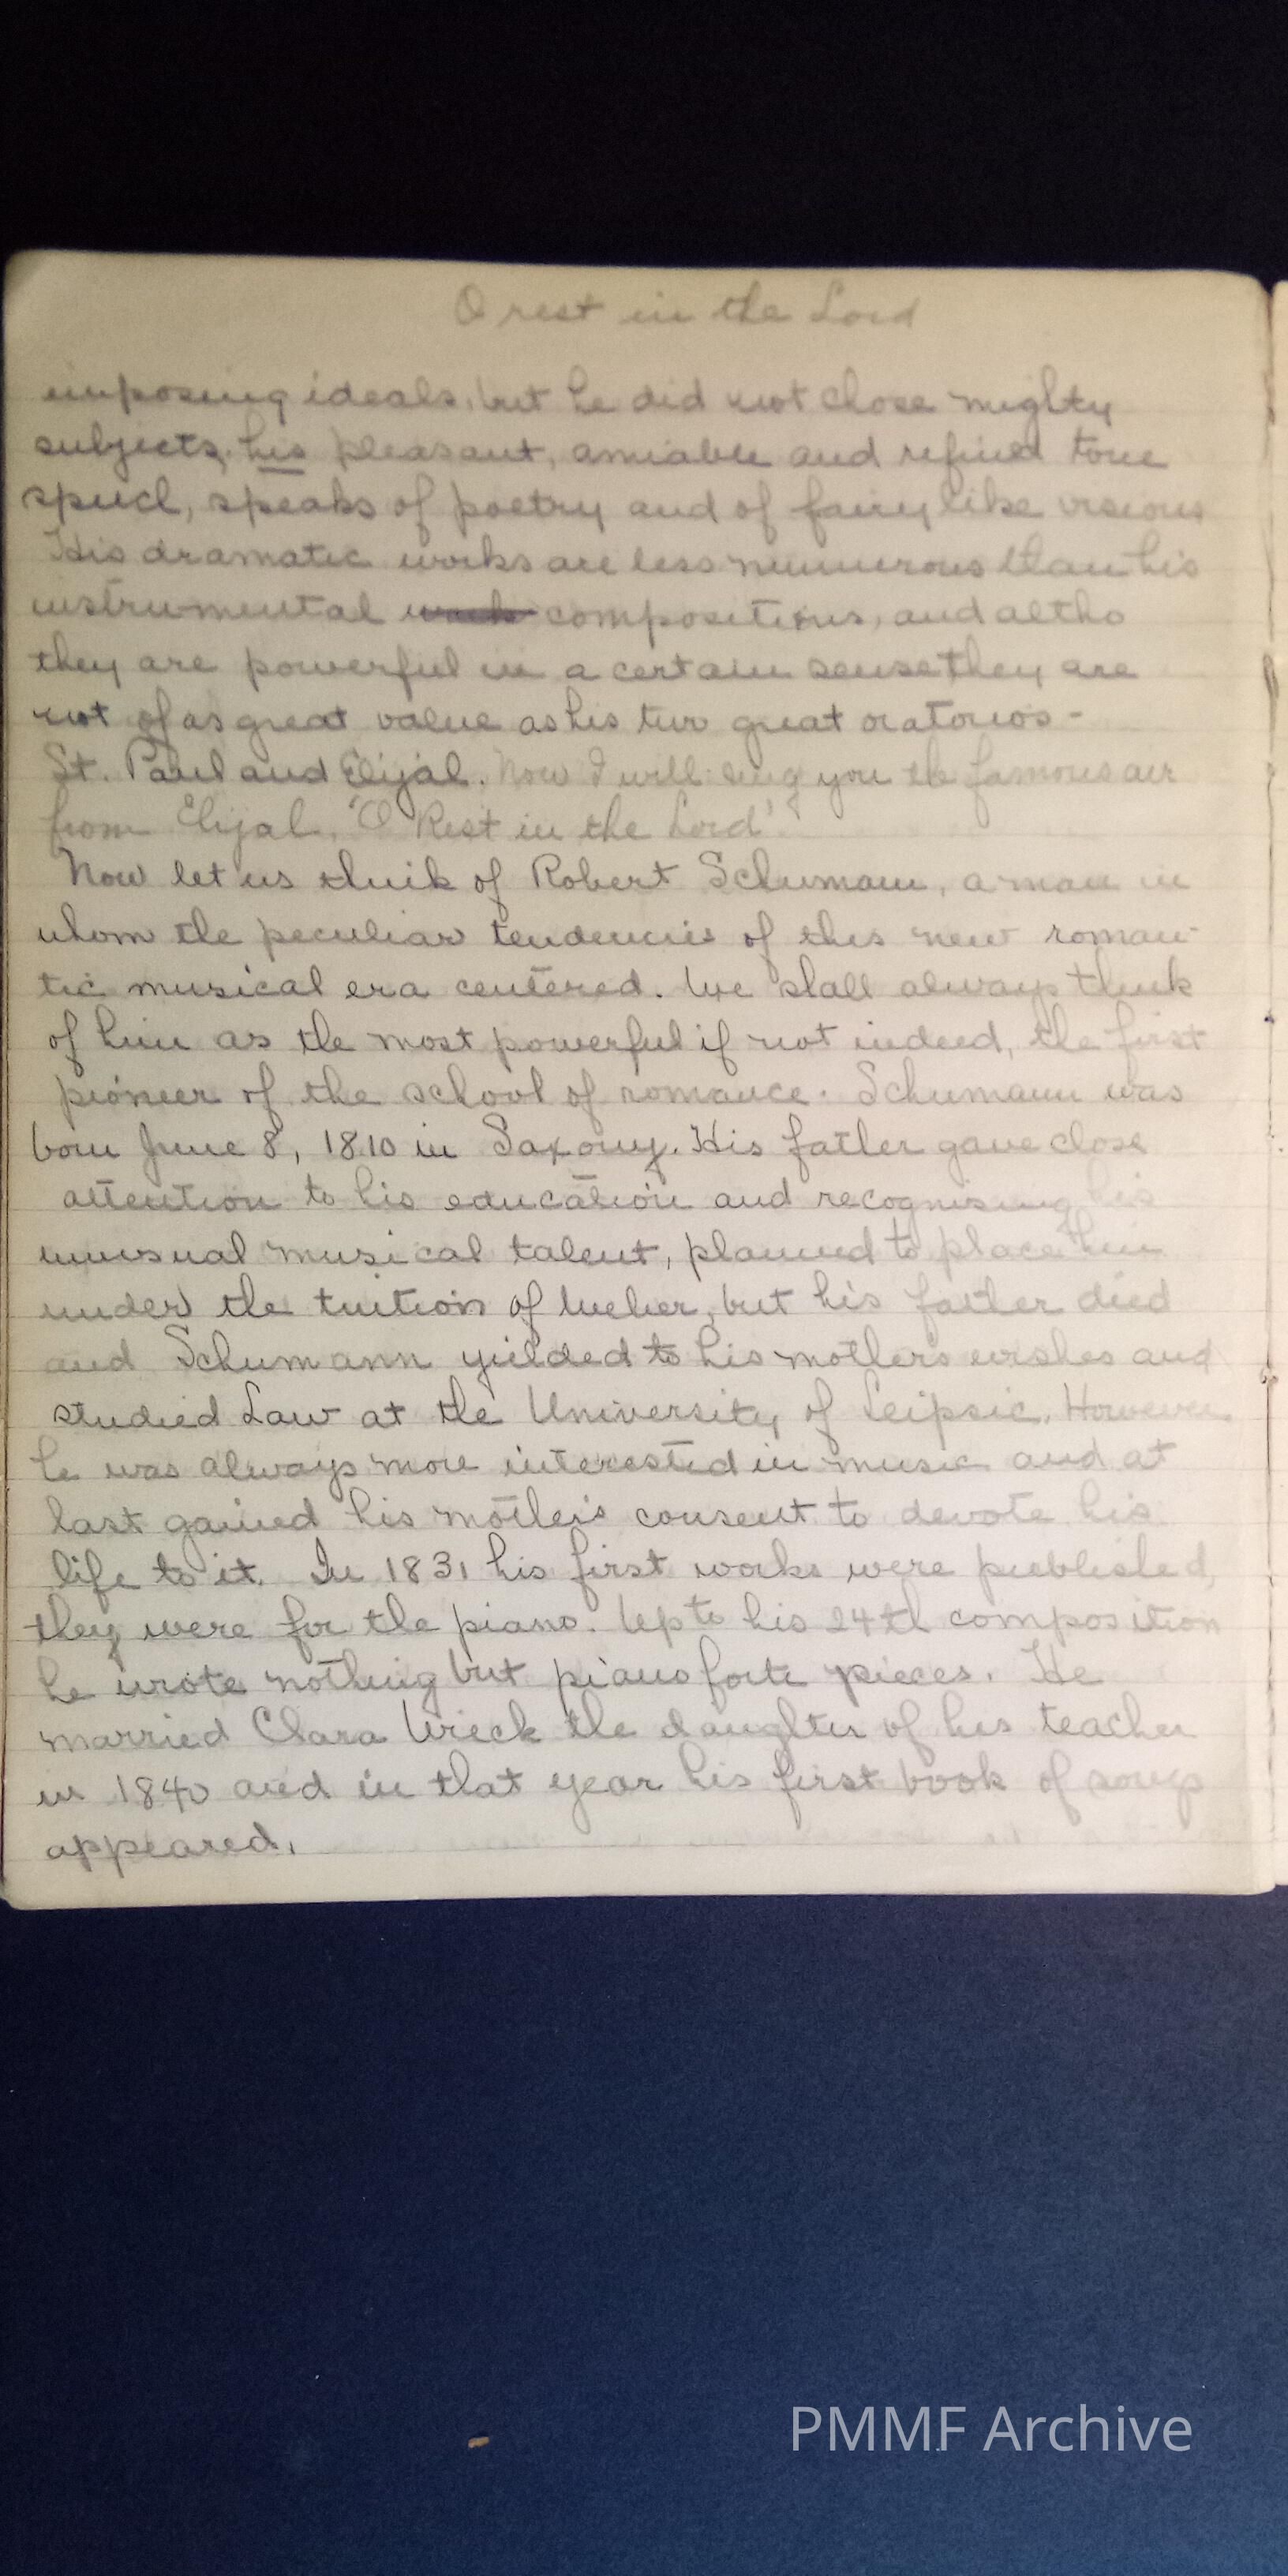 O rest in the Lord
imposing ideals, but he did not chose mighty
subjects, his pleasant, amiable and refined tone
speech, speaks of poetry and of fairy like visions
His dramatic works are less numerous than his
instrumental works compositions, and altho
they are powerful in a certain sense they are
not of as great value as his two great oratorios -
St. Paul and Elijah. Now I will sing you the famous air
from Elijah, 'O Rest in the Lord'.
Now let us think of Robert Schumann, a man in
whom the peculiar tendencies of this new roman-
tic musical era centered. We shall always think
of him as the most powerful if not indeed, the first
pioneer of the school of romance. Schumann was
born June 8, 1810 in Saxony. His father gave close
attention to his education and recognising his
unusual musical talent, planned to place him
under the tuition of Weber, but his father died
and Schumann yeilded to his mothers wishes and
studied Law at the University of Leipsic. However
he was always more interested in music and at
last gained his mother's consent to devote his
life to it. In 1831 his first works were published,
they were for the piano. Up to his 24th composition
he wrote nothing but piano forte pieces. He
married Clara Wieck the daughter of his teacher
in 1840 and in that year his first book of songs
appeared.
PMMF Archive